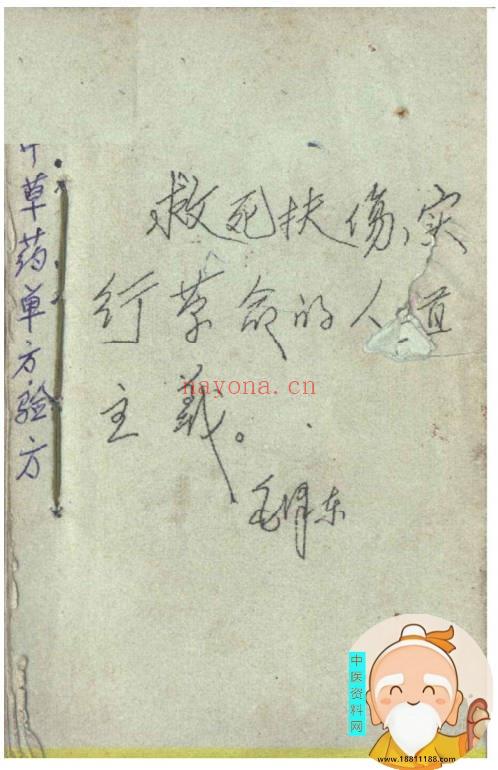 草药单方验方
救死扶伤,实
行革命的人道
主義。
毛泽东
nayona.cn
中医资料网
www.18811188.com